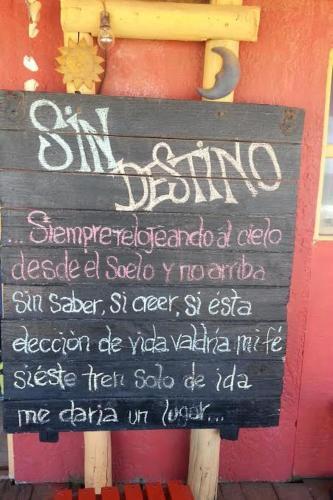 SIN
DESTINO
... Siempre relojeando al cielo
desde el Suelo y no arriba
sin saber, si creer, si ésta
elección de vida valdría mi fé
si éste tren Solo de ida
me daría un lugar...